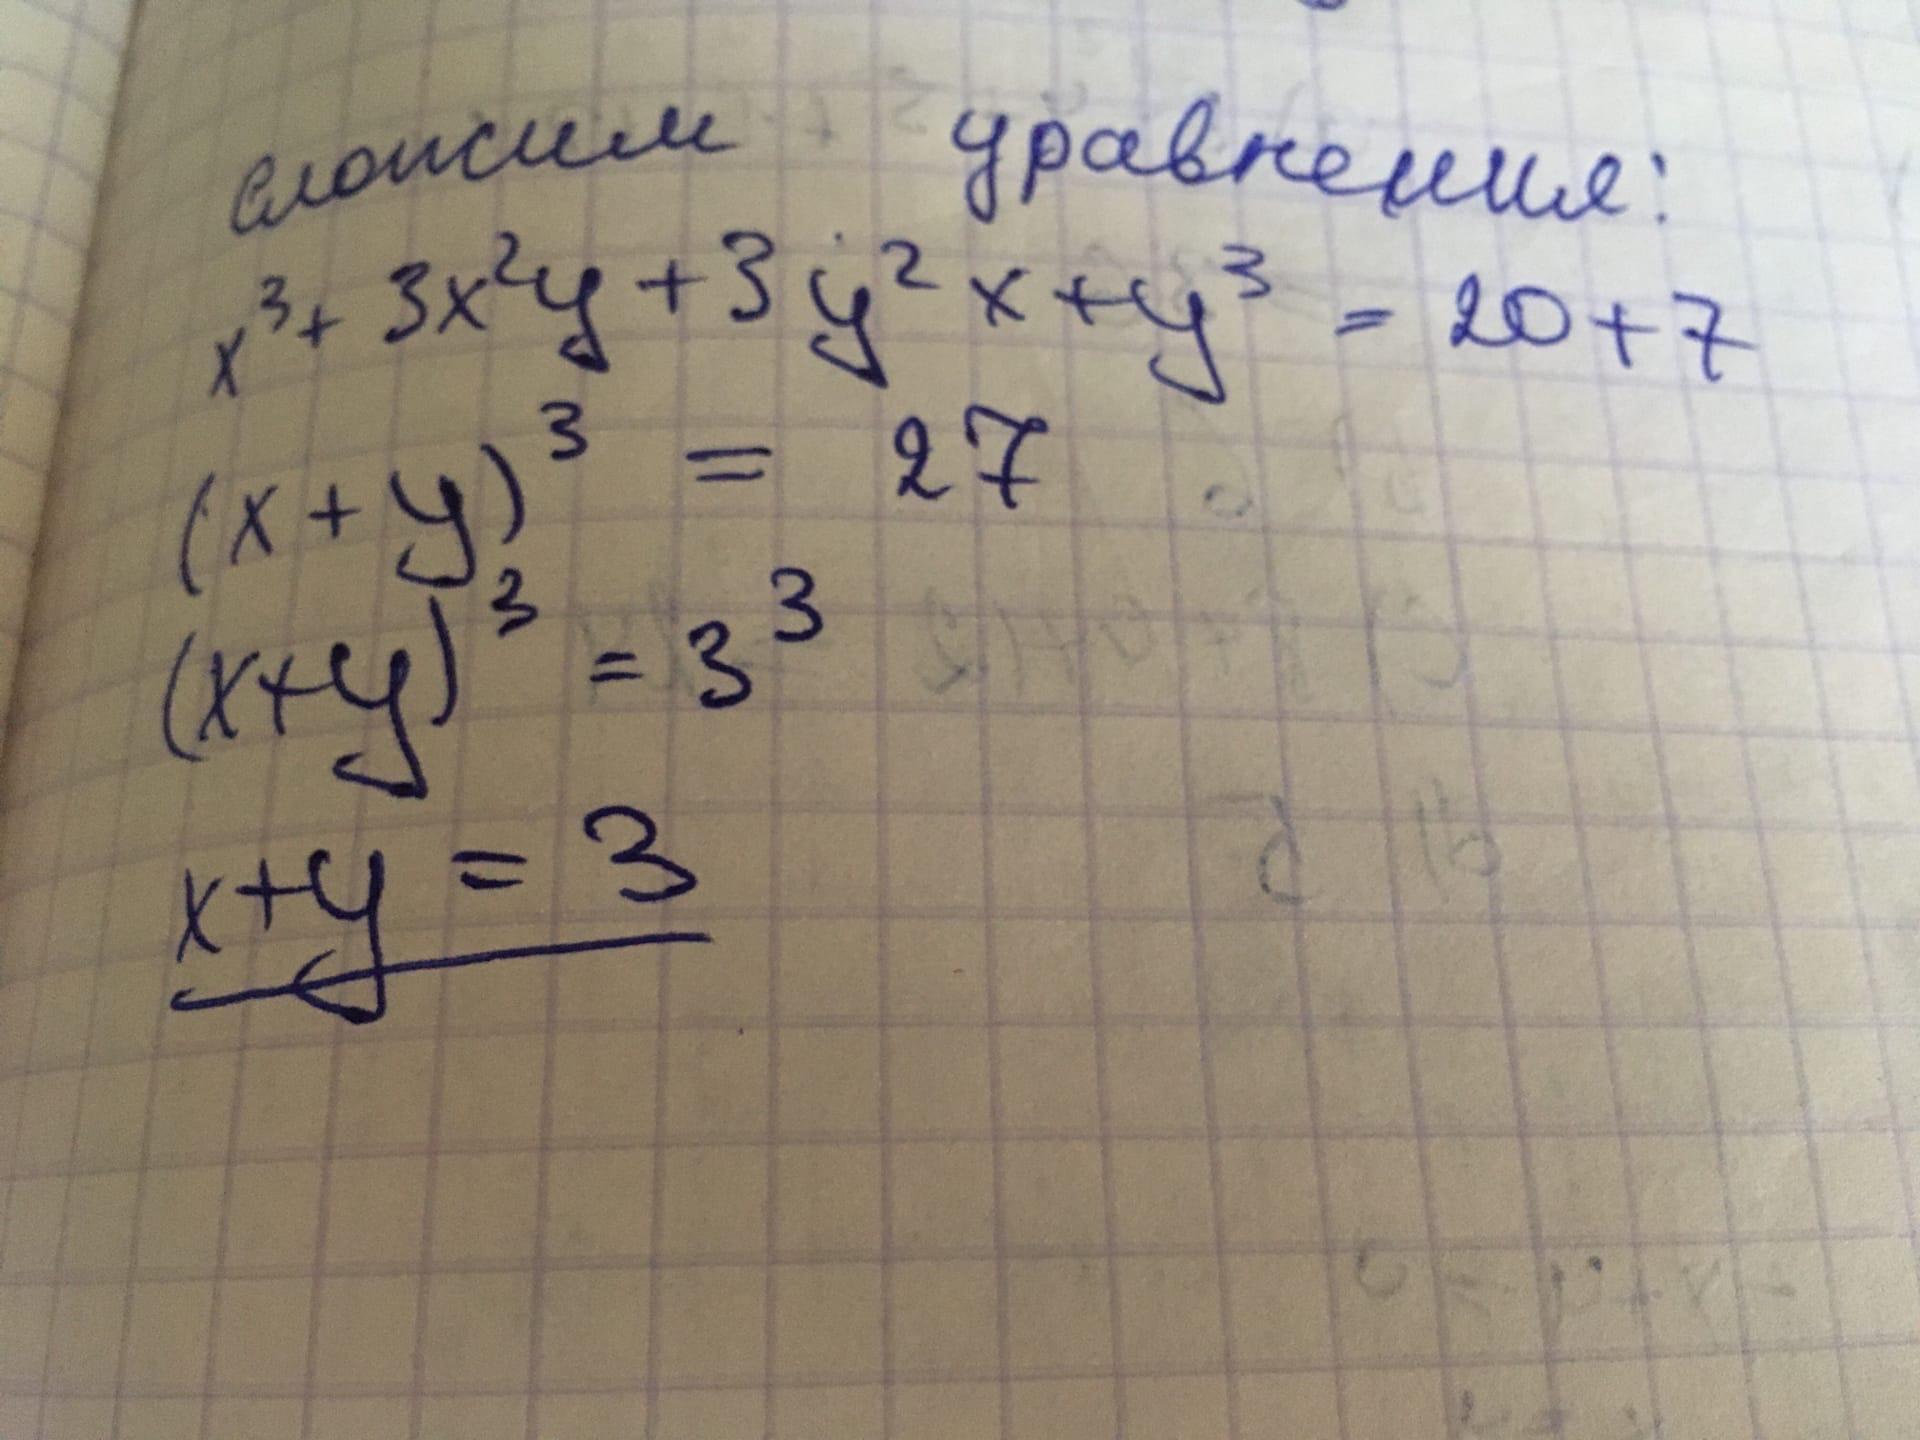 сложим уравнения:
x³ + 3x²y + 3y²x + y³ = 20 + 7
(x + y)³ = 27
(x+y)³ = 3³
x+y = 3